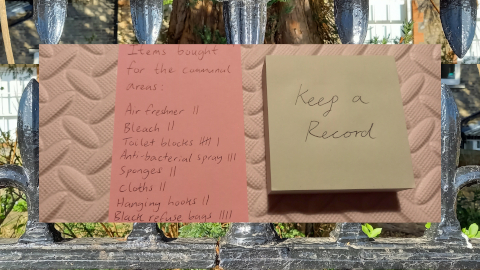 Items bought
for the communal
areas:
Air freshner II
Bleach II
Toilet blocks IIII I
Anti-bacterial spray III
Sponges II
Cloths II
Hanging hooks II
Black refuse bags IIII
Keep a
Record